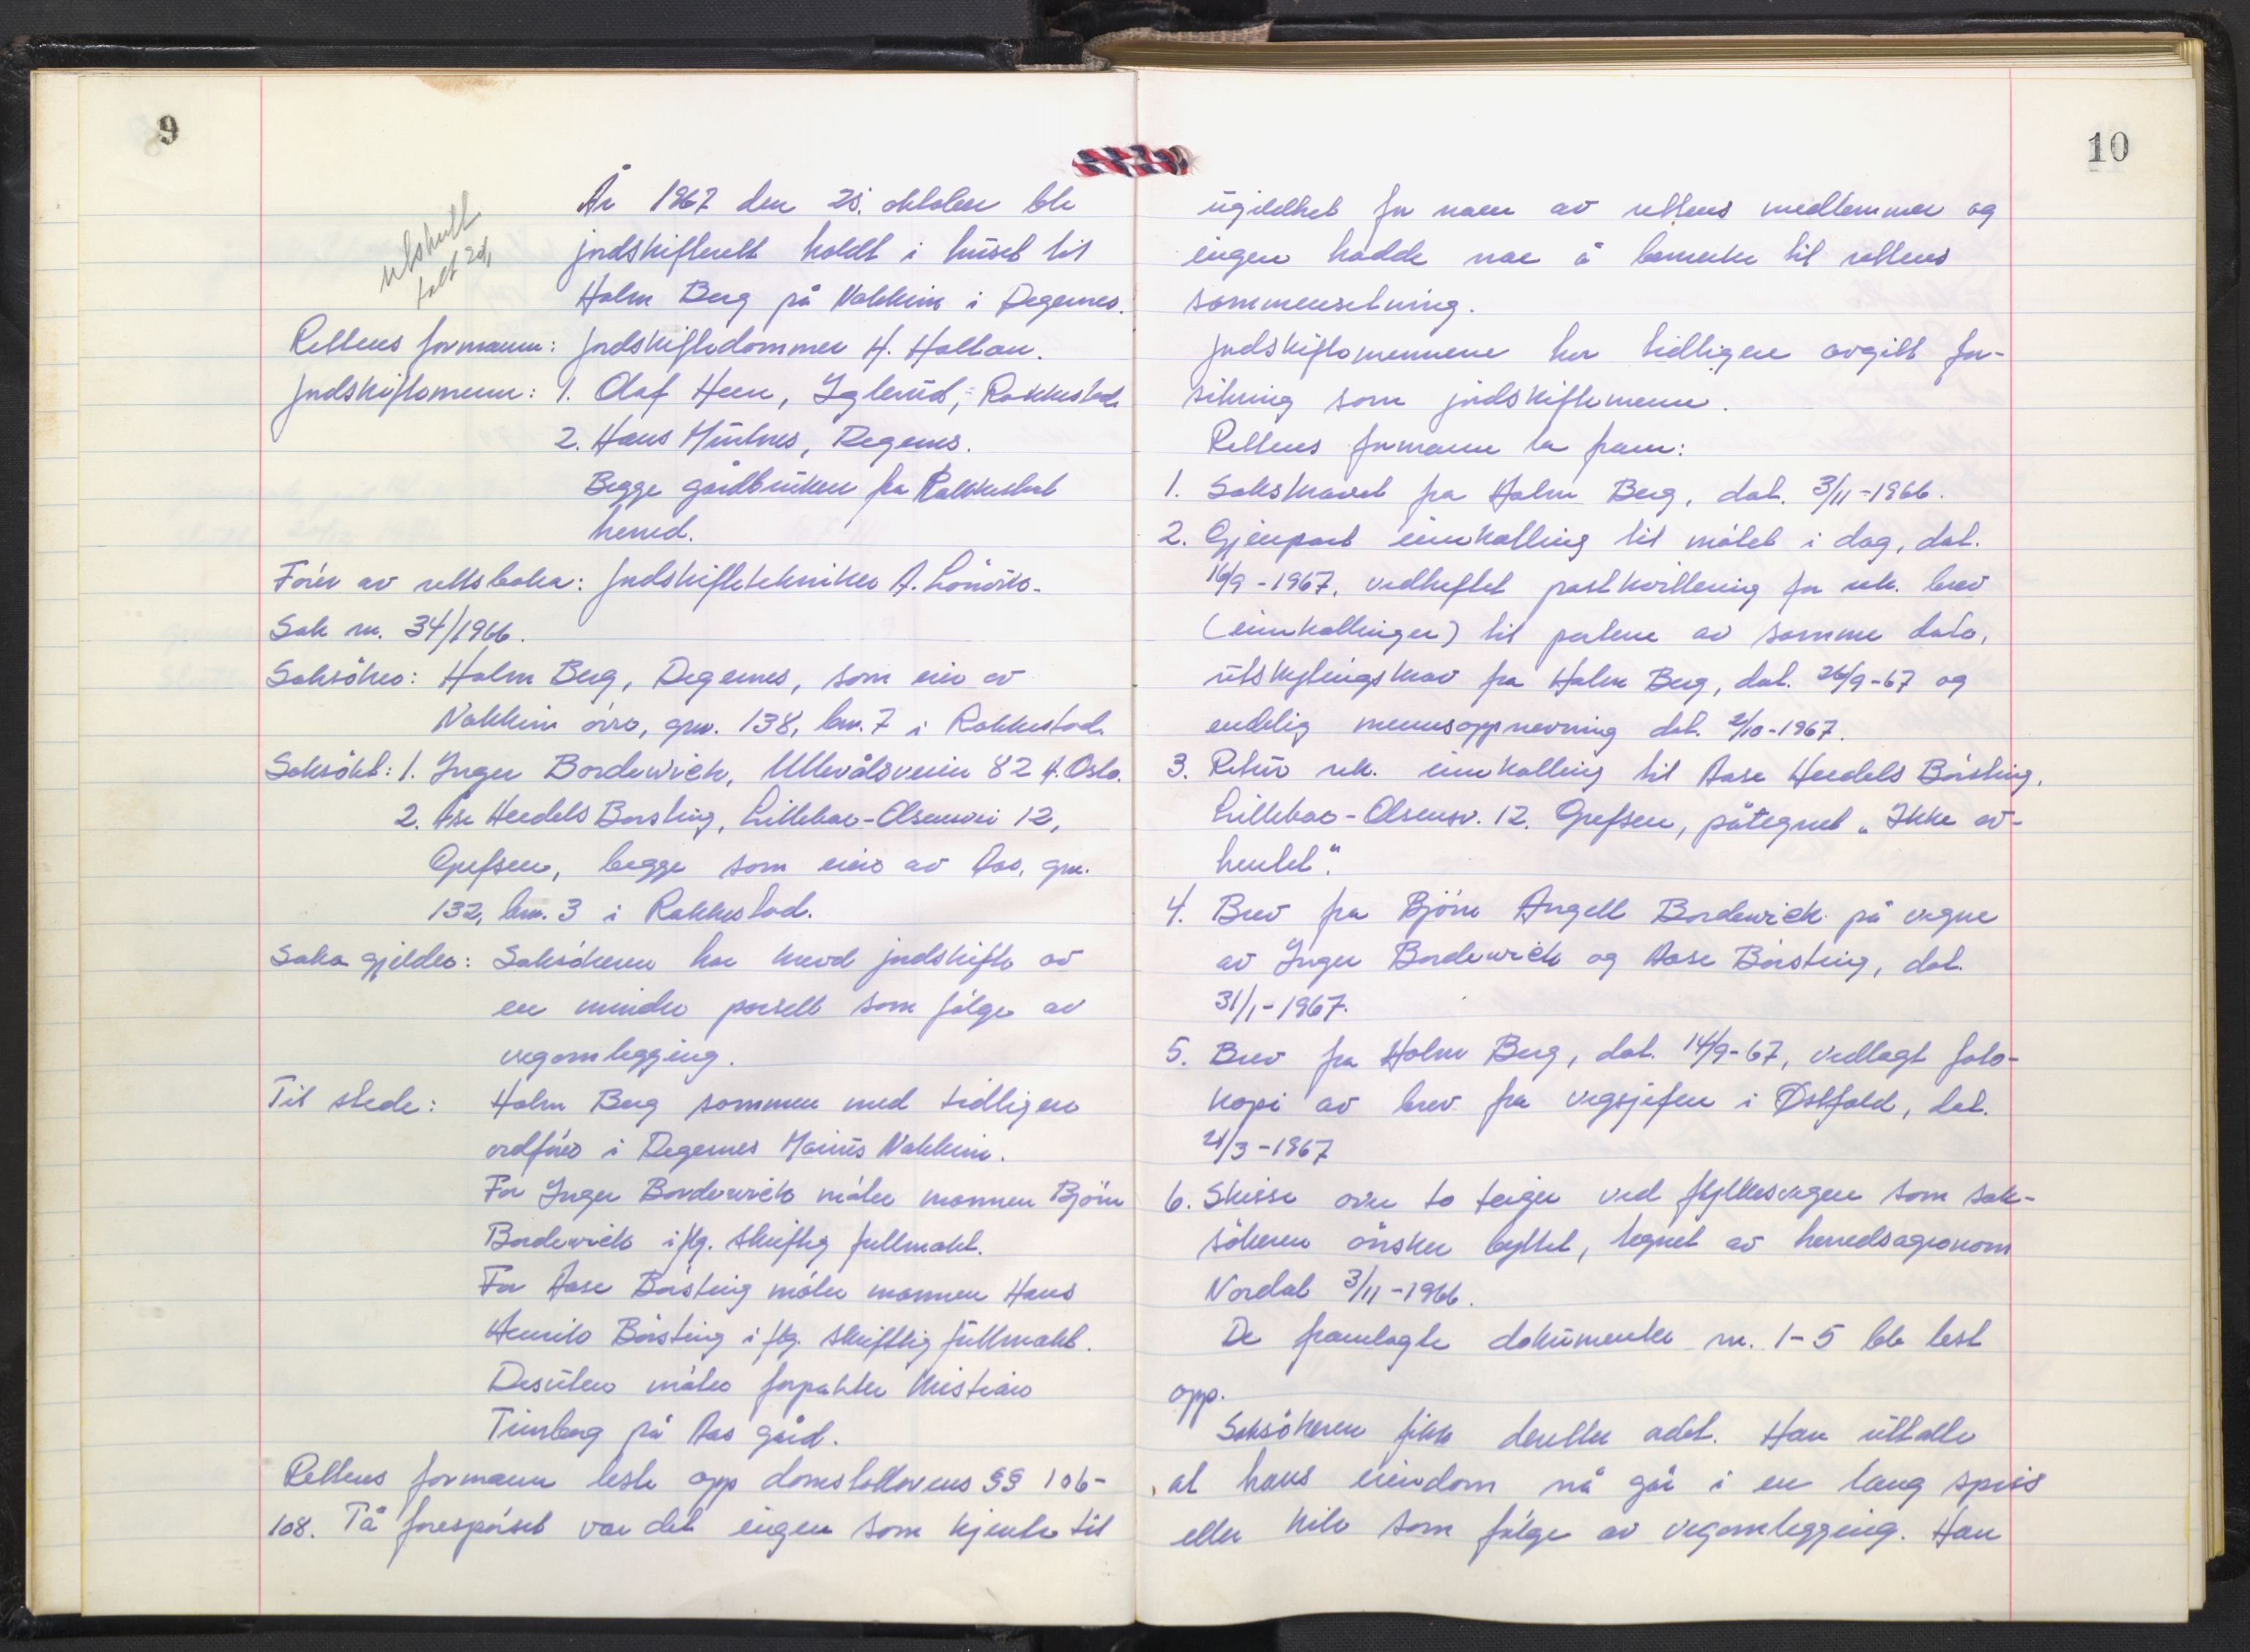 9
År 1967 den 25. oktober ble
jordskifterett holdt i huset til
Holm Berg på Nakkim i Degernes.
utskrift
talt 2d,
Rettens formann: Jordskiftedommer H. Hallan.
Jordskiftemenn: 1. Olaf Heen, Iglerud, Rakkestad
2. Hans Muntnes, Degernes.
Begge gårdbrukere fra Rakkestad
herred.
Fører av rettsboka: Jordskiftetekniker A. Lönvik.
Sak nr. 34/1966.
Saksöker: Holm Berg, Degernes, som eier av
Nakkim övre, gnr. 138, bnr. 7 i Rakkestad.
Saksökt: 1. Inger Bordewick, Ullevålsveien 82 A. Oslo.
2. Åse Heedels Börsting, Lillebae-Olsensvei 12,
Grefsen, begge som eier av Aas, gnr.
132, bnr. 3 i Rakkestad.
Saka gjelder: Saksökeren har krevd jordskifte av
en mindre parsell som fölge av
vegomlegging.
Til stede: Holm Berg sammen med tidligere
ordförer i Degernes Marius Nakkim.
For Inger Bordewick möter mannen Björn
Bordewick iflg. skriftlig fullmakt.
For Aase Börsting möter mannen Hans
Henrik Börsting iflg. skriftlig fullmakt.
Desuten möter forpakter Kristian
Timberg på Aas gård.
Rettens formann leste opp domstollovens §§ 106-
108. På forespörsel var det ingen som kjente til
10
ugildhet for noen av rettens medlemmer og
ingen hadde noe å bemerke til rettens
sammensetning.
Jordskiftemennene har tidligere avgitt for-
sikring som jordskiftemenn.
Rettens formann la fram:
1. Sakskravet fra Holm Berg, dat. 3/11-1966.
2. Gjenpart innkalling til mötet i dag, dat.
16/9-1967, vedheftet postkvittering for rek. brev
(innkallinger) til partene av samme dato,
utskytingskrav fra Holm Berg, dat. 26/9-67 og
endelig mennsoppnevning dat. 2/10-1967.
3. Retur rek. innkalling til Aase Heedels Börsting,
Lillebae-Olsensv. 12. Grefsen, påtegnet „Ikke av-
hentet".
4. Brev fra Björn Angell Bordewick på vegne
av Inger Bordewick og Aase Börsting, dat.
31/1-1967.
5. Brev fra Holm Berg, dat. 14/9-67, vedlagt foto-
kopi av brev fra vegsjefen i Østfold, dat.
21/3-1967
6. Skisse over to teiger ved fylkesvegen som sak-
sökeren önsker byttet, tegnet av herredsagronom
Nordal 3/11-1966.
De framlagte dokumenter nr. 1-5 ble lest
opp.
Saksökeren fikk deretter ordet. Han uttalte
at hans eiendom nå går i en lang spiss
eller kile som fölge av vegomlegging. Han